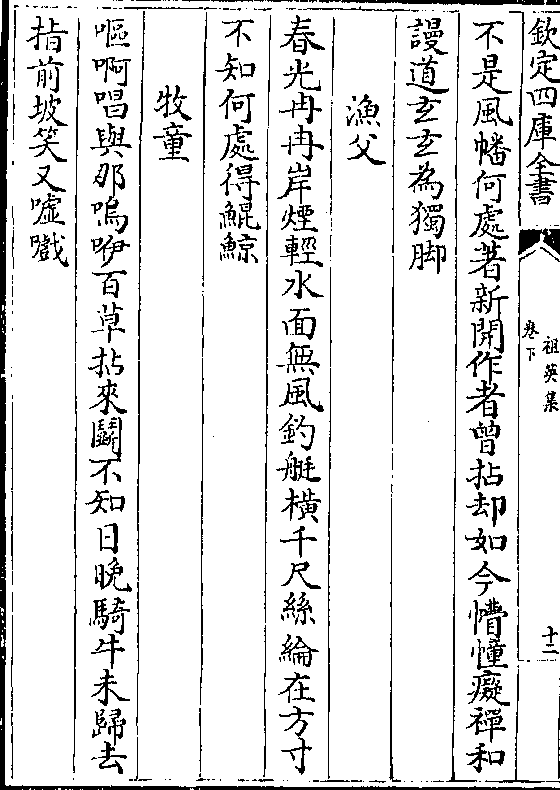 欽定四庫全書
祖英集
卷下
十二
不是風幡何處著新開作者曾拈却如今懵憧癡禪和
謾道玄玄為獨脚
漁父
春光冉冉岸煙輕水面無風釣艇橫千尺絲綸在方寸
不知何處得鯤鯨
牧童
嘔啊唱與那嗚咿百草拈來鬭不知日晚騎牛未歸去
指前坡笑又嘘戲